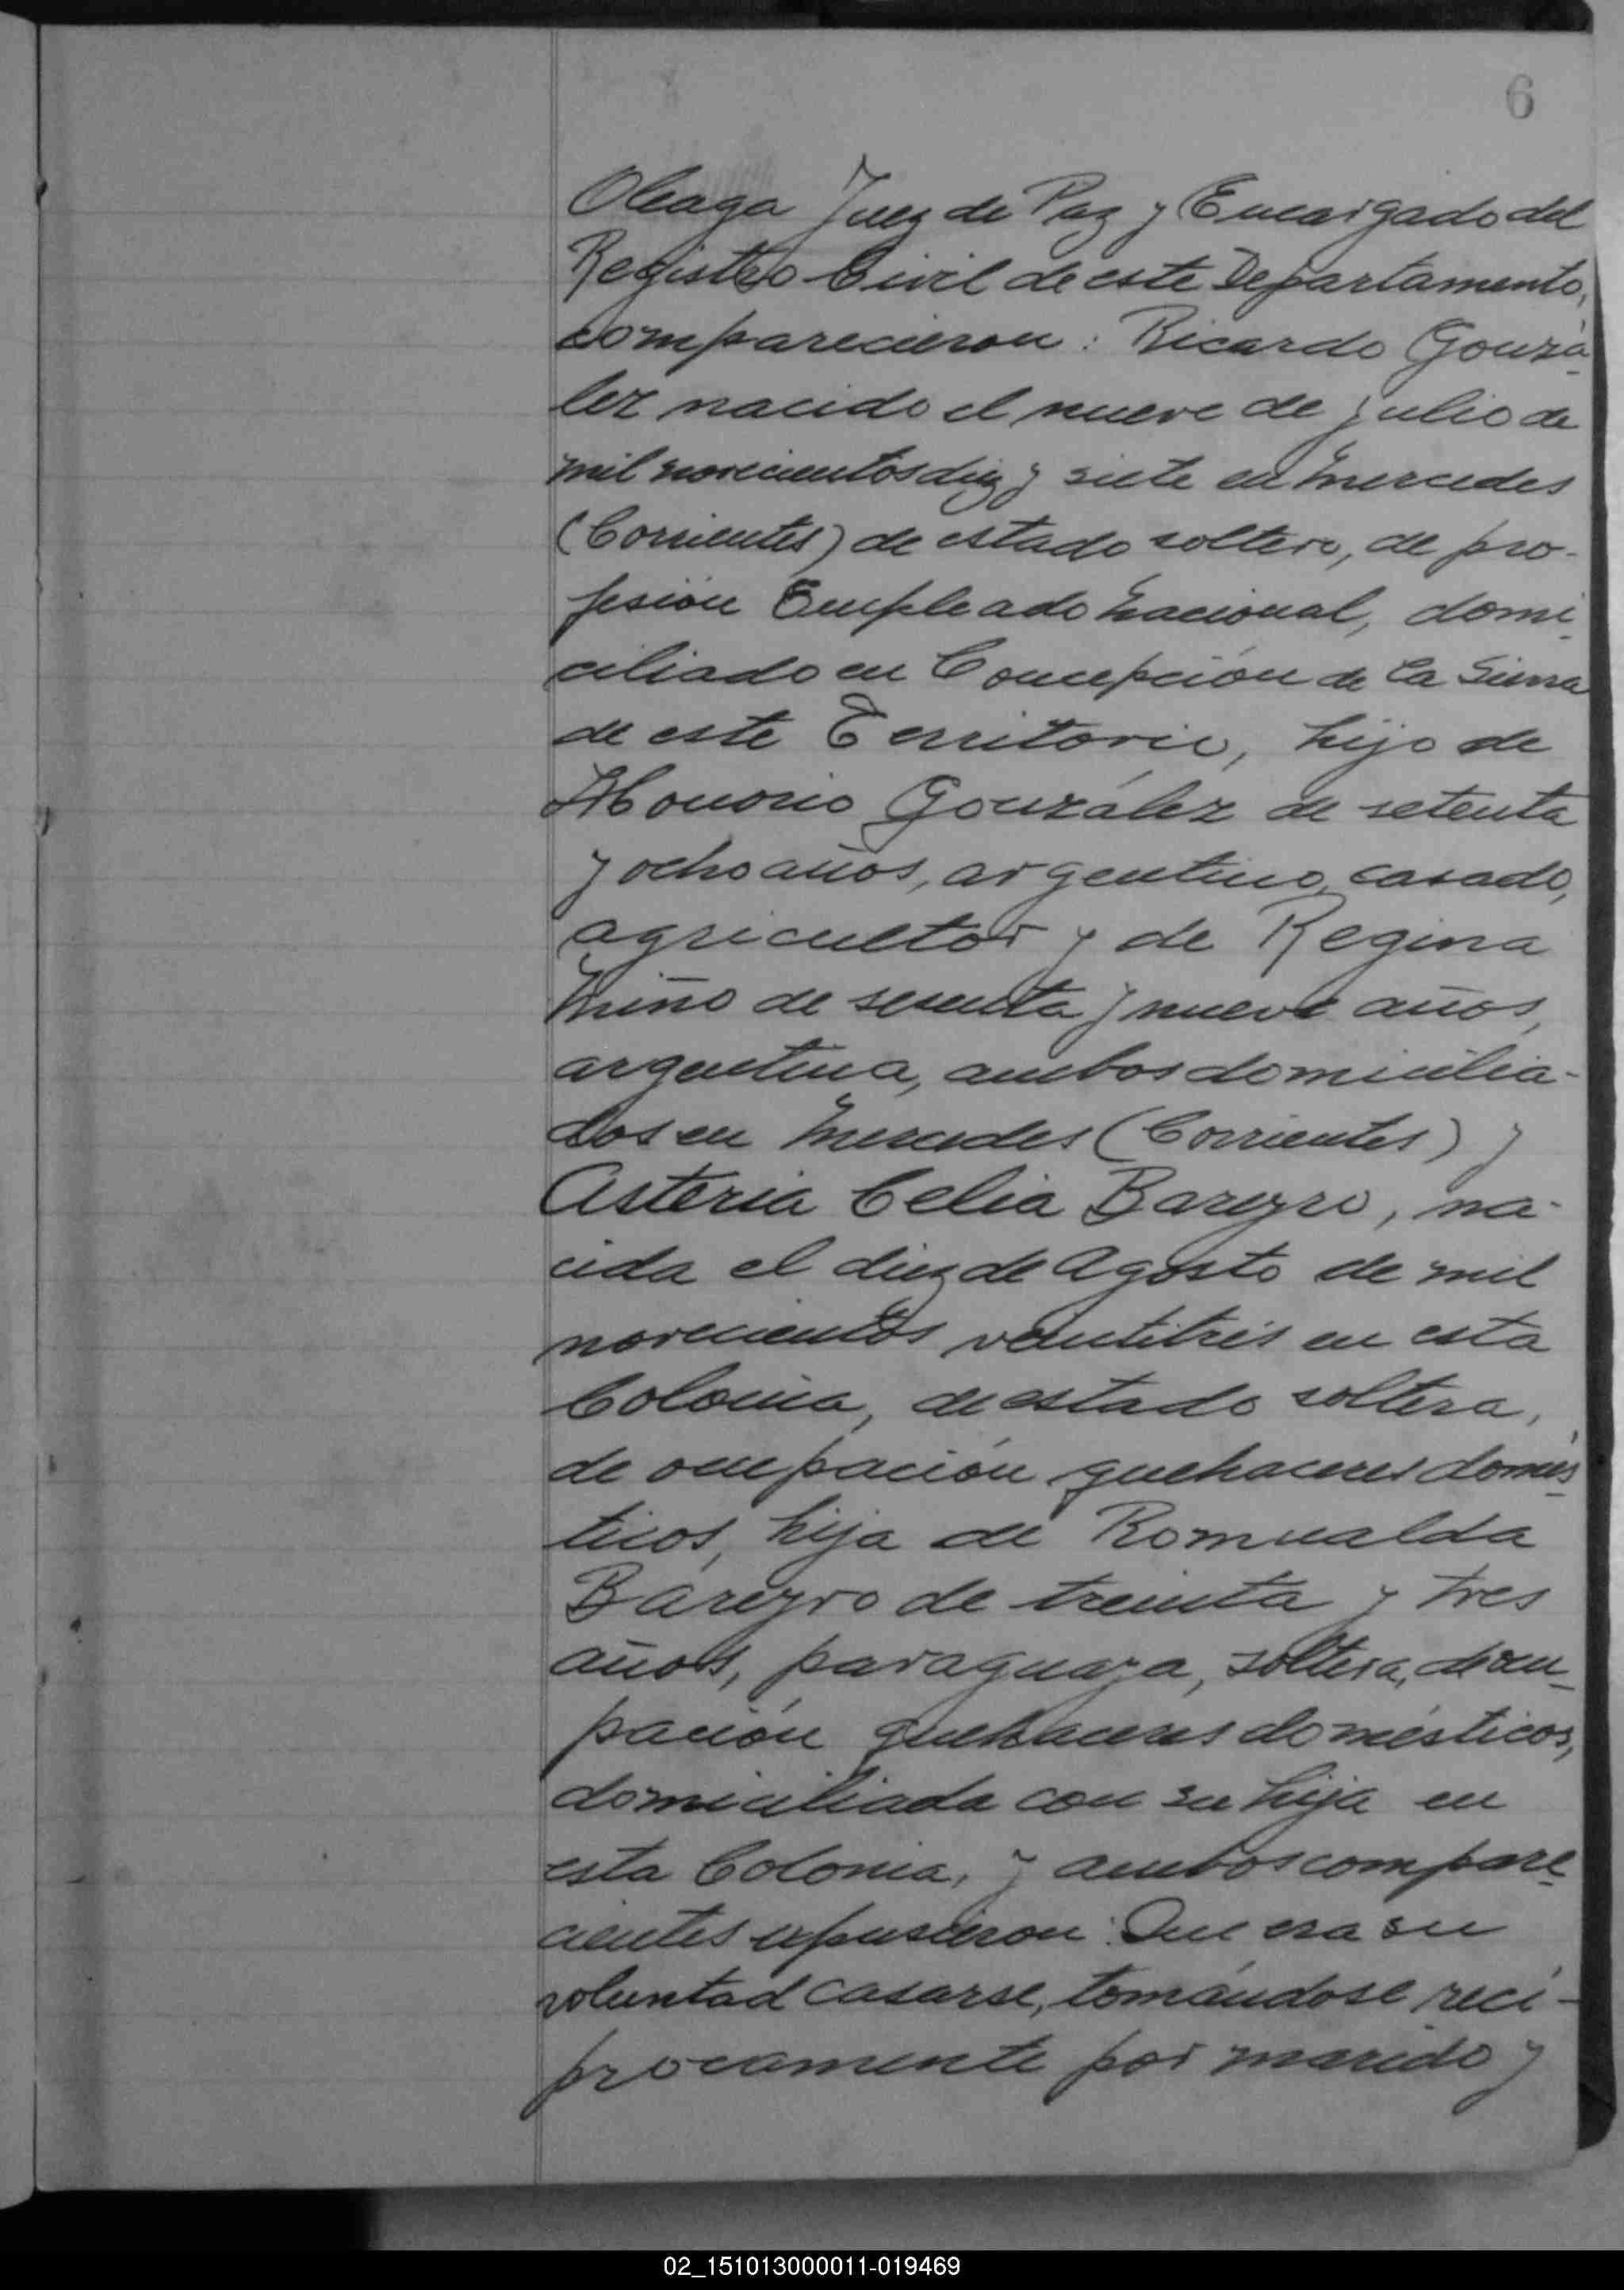 6
Oleaga Juez de Paz y Encargado del
Registro Civil de este Departamento,
comparecieron: Ricardo Gonzá-
lez nacido el nueve de julio de
mil novecientos diez y siete en Mercedes
(Corrientes) de estado soltero, de pro-
fesión Empleado Nacional, domi-
ciliado en Concepción de la Sierra
de este Territorio, hijo de
Honorio González de setenta
y ocho años, argentino, casado,
agricultor y de Regina
Miño de sesenta y nueve años,
argentina, ambos domicilia-
dos en Mercedes (Corrientes) y
Asteria Celia Bareyro, na-
cida el diez de Agosto de mil
novecientos veintitrés en esta
Colonia, de estado soltera,
de ocupación quehaceres domés-
ticos, hija de Romualda
Bareyro de treinta y tres
años, paraguaya, soltera, de ocu-
pación quehaceres domésticos,
domiciliada con su hija en
esta Colonia, y ambos compare-
cientes expusieron: Que era su
voluntad casarse, tomándose recí-
procamente por marido y
02_151013000011-019469